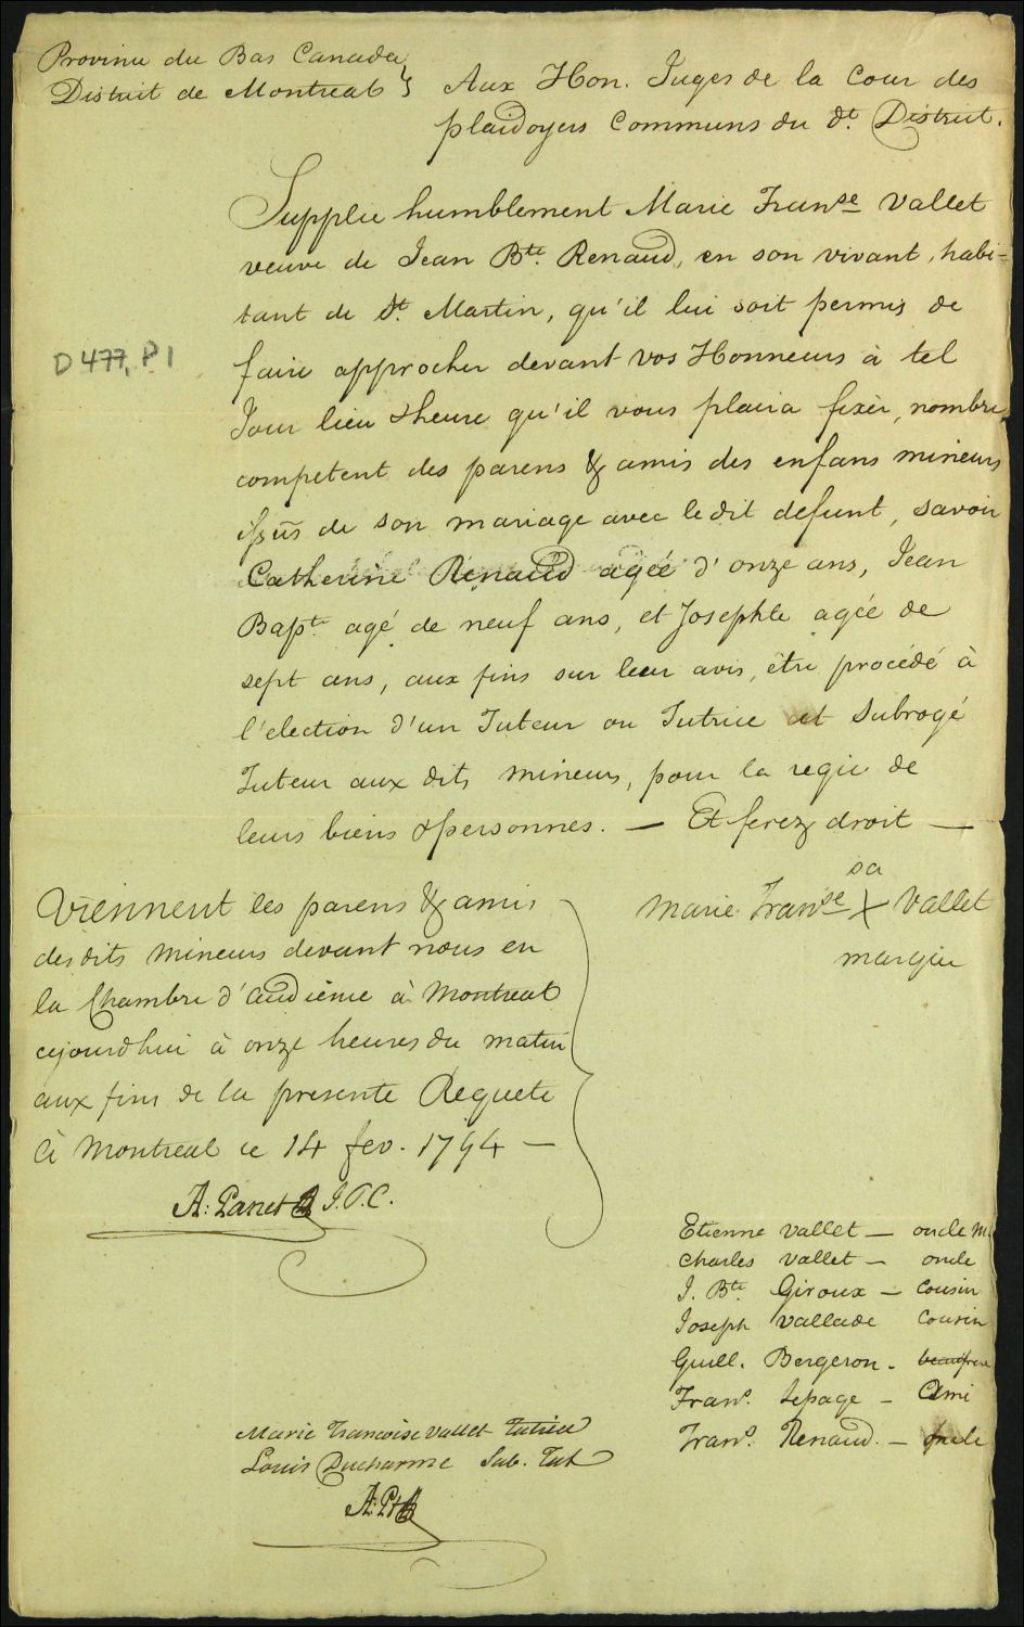 Province du Bas Canada
District de Montreal } Aux Hon. Juges de la Cour des
plaidoyers Communs du dt. District.
Supplie humblement Marie Franse Vallet
veuve de Jean Bte. Renaud, en son vivant, habi=
tant de St. Martin, qu'il lui soit permis de
faire approcher devant vos Honneurs à tel
Jour lieu & heure qu'il vous plaira fixèr, nombre
competent des parens & amis des enfans mineurs
issus de son mariage avec le dit defunt, savoir
Catherine Renaud agée d'onze ans, Jean
Bapt. agé de neuf ans, et Josephte agée de
sept ans, aux fins sur leur avis, être procédé à
l'election d'un Tuteur ou Tutrice et Subrogé
Tuteur aux dits mineurs, pour la regie de
leurs biens & personnes. — Et ferez droit —
D 477, P 1
sa
Marie Franse X Vallet
marque
Viennent les parens & amis
des dits mineurs devant nous en
la Chambre d'audience à Montreal
cejourdhui à onze heures du matin
aux fins de la presente Requete
à Montreal ce 14 fev. 1794 —
A: Panet J.P.C.
Etienne Vallet — oncle M.
Charles Vallet — oncle
J. Bte. Giroux — Cousin
Joseph Vallade Cousin
Guill. Bergeron - beaufrere
Frans. Lepage — Ami
Frans. Renaud. — oncle
Marie Francoise Vallet Tutrice
Louis Ducharme Sub. Tut
A: Pt